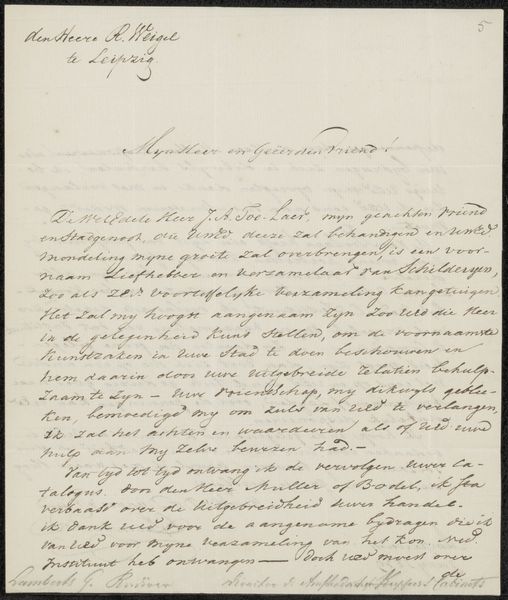 5
den Heere R. Weigel
te Leipzig.
Mijn Heer en Geëerden Vriend!
De WelEdele Heer J. A. Too-Laer, myn geachten vriend
en Stadgenoot, die UWEd. deeze zal behandigen en UWEd
mondeling myne groete zal overbrengen, is een voor-
naam Liefhebber en verzamelaar van Schilderyen,
Zoo als zyn voortreffelyke verzameling kan getuigen
Het zal my hoogst aangenaam zyn zoo UEd die Heer
in de gelegenheid kunt stellen, om de voornaamste
Kunstzaken in Uwe Stad te doen beschouwen en
hem daarin door uwe uitgebreide relatien behulp-
zaam te zyn — Uwe vriendschap, my dikwyls geblee-
ken, bemoedigd my om zulks van UEd te verlangen,
ik zal het achten en waarderen als of UEd uwe
hulp aan my zelve bewezen had. —
Van tyd tot tyd ontvang ik de vervolgen Uwer Ca-
talogus. van den Heer Muller of Bodel, ik sta
verbaast over de Uitgebreidheid Uwer handel.
ik dank UEd voor de aangename bydragen die ik
van UEd voor myne verzameling van het Kon. Ned
Instituut heb ontvangen — doch UEd moest over
de
Lamberts J. directeur d. Amsterdam